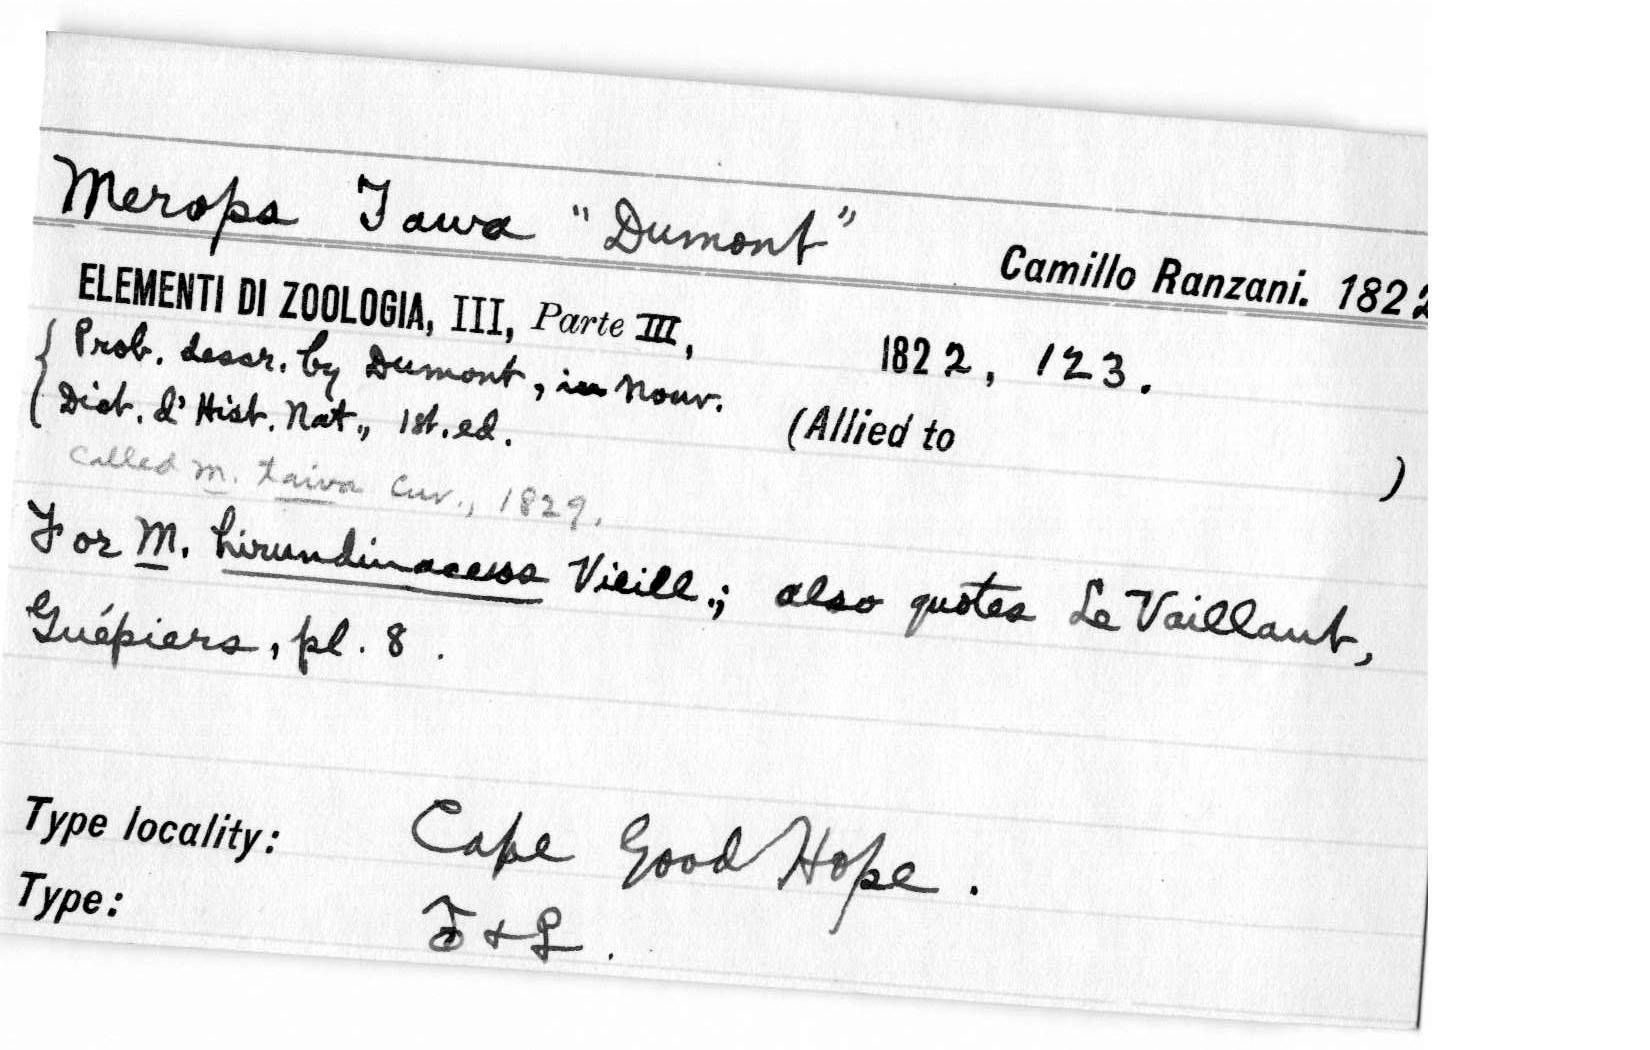 Merops Tawa "Dumont"
Camillo Ranzani. 1822
ELEMENTI DI ZOOLOGIA, III, Parte III, 1822, 123.
Prob. descr. by Dumont, in Nouv.
Dict. d'Hist. Nat., 1st. ed.
(Allied to )
called M. taiva Cuv., 1829.
For M. hirundinaceus Vieill.; also quotes Le Vaillant,
Guépiers, pl. 8.
Type locality: Cape Good Hope.
Type: ♂ + ♀.